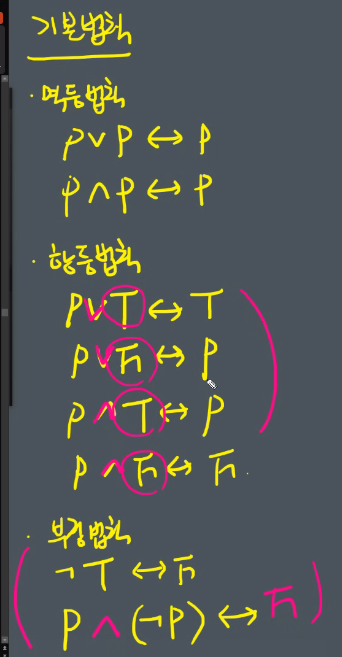 기본법칙
· 멱등법칙
P ∨ P ↔ P
P ∧ P ↔ P
· 항등법칙
P ∨ T ↔ T
P ∨ F ↔ P
P ∧ T ↔ P
P ∧ F ↔ F
· 부정법칙
¬T ↔ F
P ∧ (¬P) ↔ F